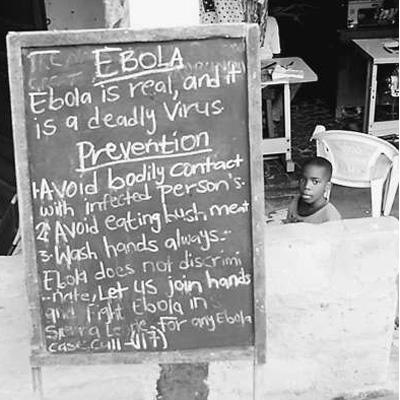 EBOLA
Ebola is real, and it
is a deadly Virus.
Prevention
1. Avoid bodily contact
with infected Person's.
2. Avoid eating bush meat
3. Wash hands always...
Ebola does not discrimi
-nate, Let us join hands
and Fight Ebola in
Sierra Leone. For any Ebola
case call -(117)